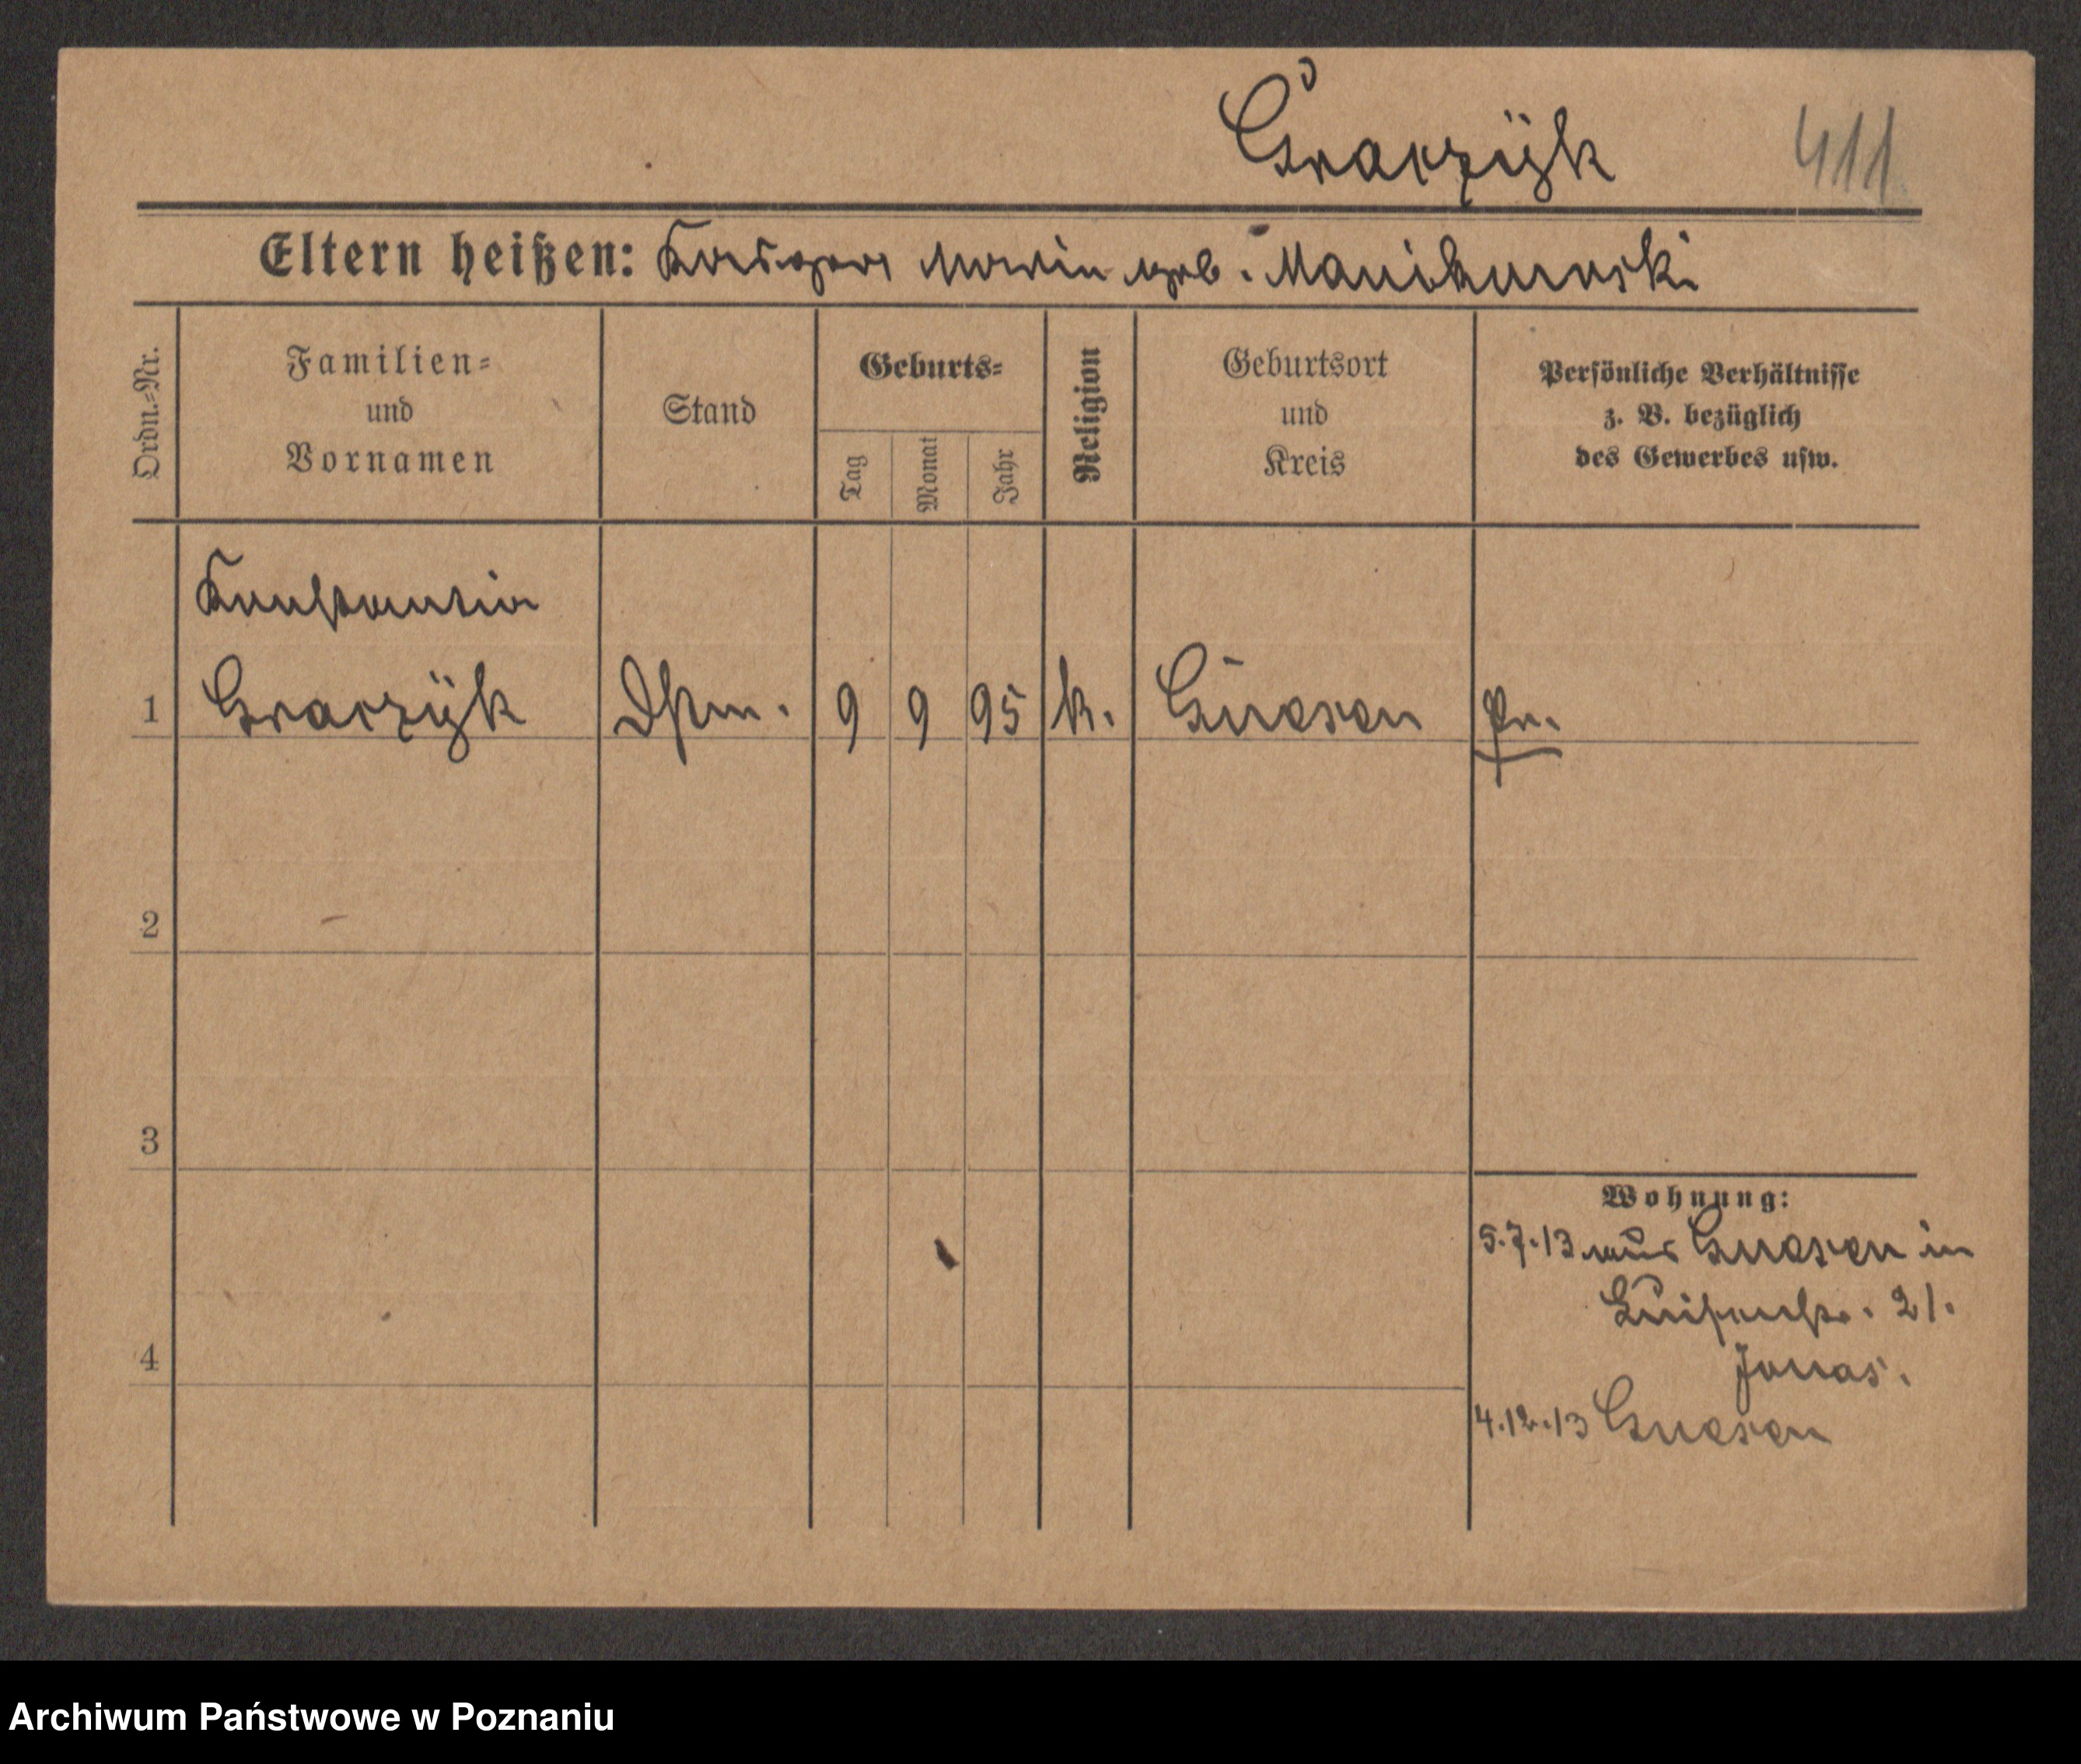 Graczÿk 411
Eltern heißen: Kaspar Maria geb.
Ordn.=Nr.
Familien=
und
Vornamen
Stand
Geburts=
Tag
Monat
Jahr
Religion
Geburtsort
und
Kreis
Persönliche Verhältnisse
z. B. bezüglich
des Gewerbes usw.
Konstantia
1 Graczÿk Dstm. 9 9 95 k. Gnesen Pr.
2
3
Wohnung:
5.7.13 aus Gnesen in
Luisenstr. 21.
4 Jonas.
4.12.13 Gnesen
Archiwum Państwowe w Poznaniu